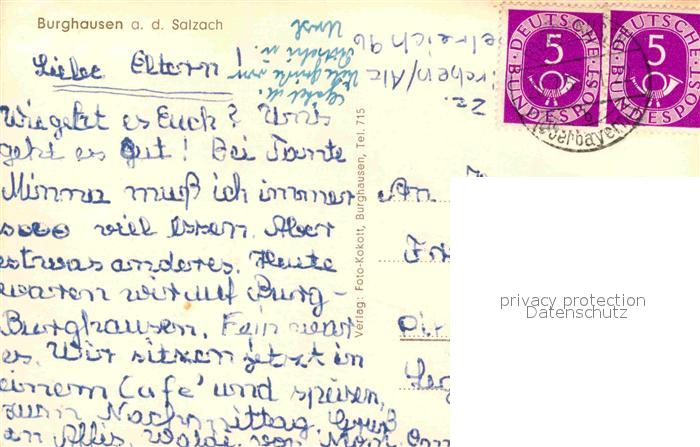 Burghausen a. d. Salzach
Liebe Eltern!
Wie geht es Euch? Uns
geht es gut! Bei Tante
Minna muß ich immer
sooo viel essen. Aber
etwas anderes. Heute
waren wir auf Burg-
Burghausen. Fein war
es. Wir sitzen jetzt in
einem Cafe' und speisen,
zum Nachmittag. Gruß
an Alle.
Verlag: Foto-Kokott, Burghausen, Tel. 715
irchen/Alz
DEUTSCHE BUNDESPOST
5
DEUTSCHE BUNDESPOST
5
(Oberbayern)
An
privacy protection
Datenschutz